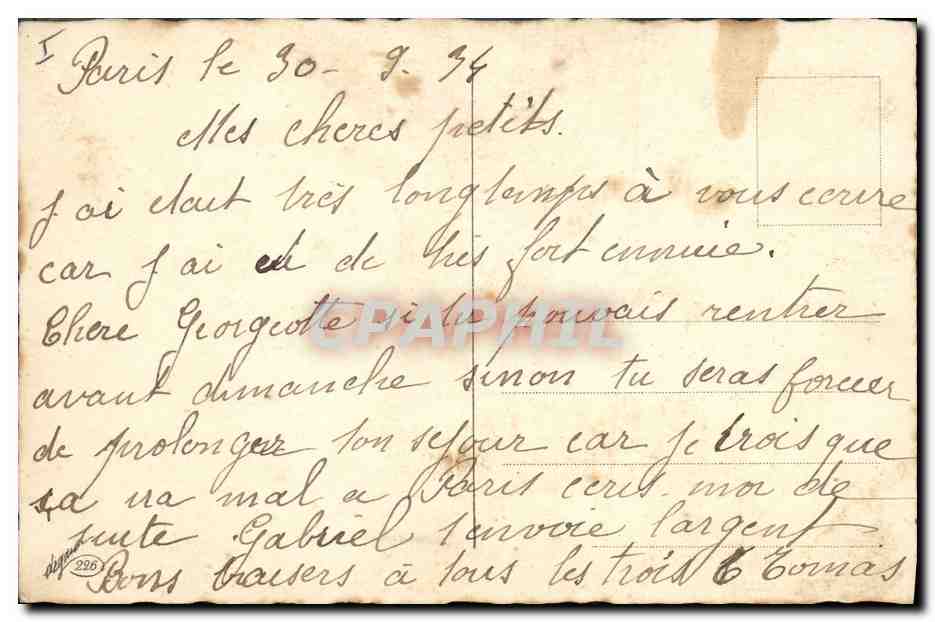 I
Paris le 30 - 9. 34
Mes cheres petits.
J ai etait très longtemps à vous ecrire
car J ai eu de très fort ennuie.
Chere Georgette si tu pouvais rentrer
avant dimanche sinon tu seras forcer
de prolonger ton sejour car je crois que
sa va mal a Paris ecris-moi de
suite Gabriel t'envoie l'argent
Bons baisers à tous les trois Tomas
CPAPHIL
226